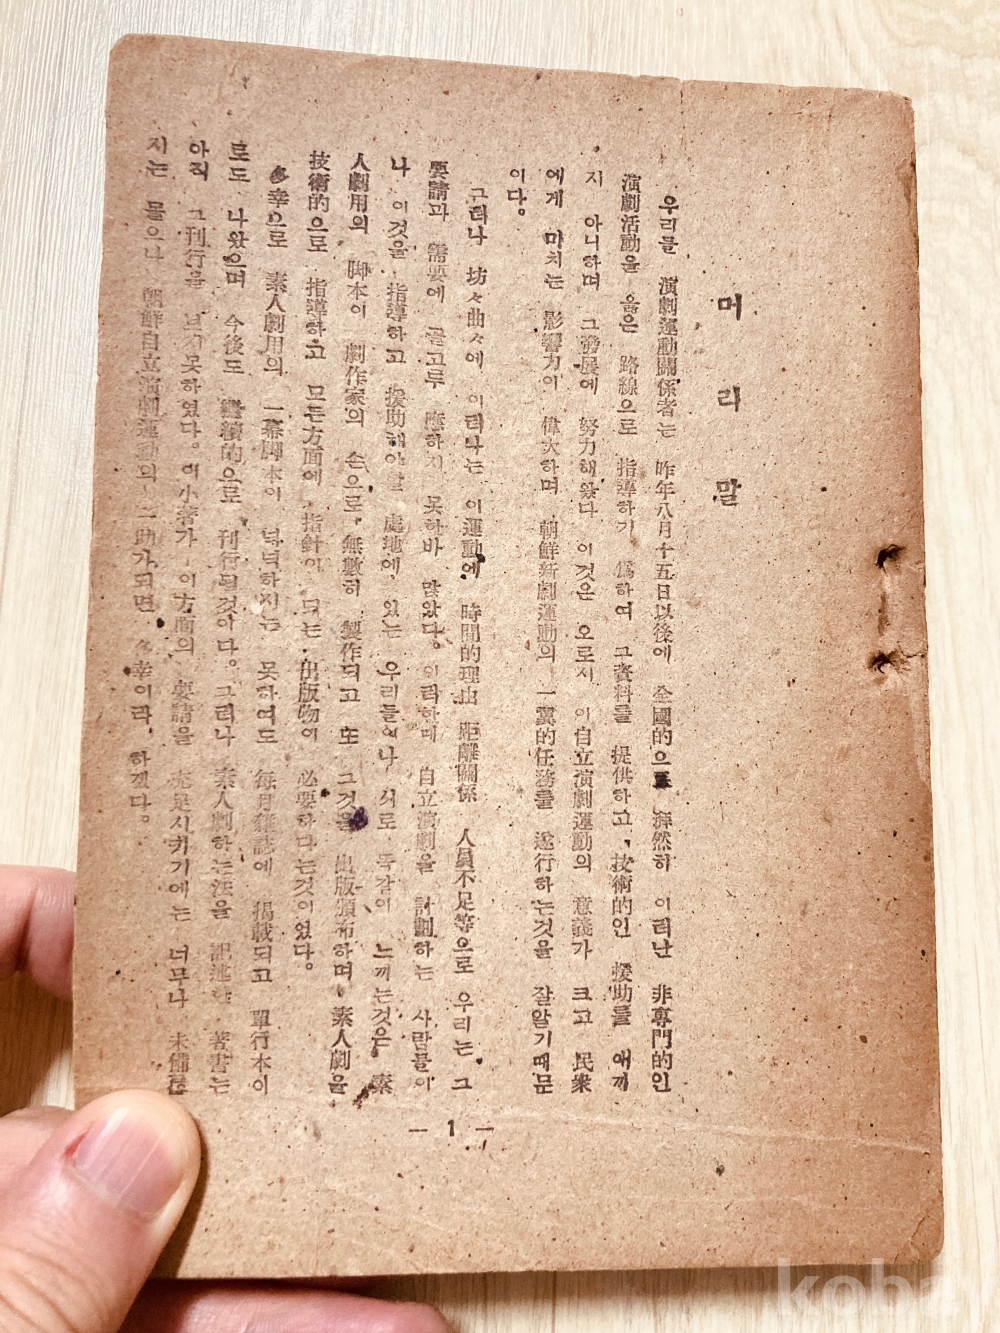 머리말
우리들 演劇運動關係者는 昨年八月十五日以後에 全國的으로 澎然히 이러난 非專門的인
演劇活動을 옳은 路線으로 指導하기 爲하여 그資料를 提供하고, 技術的인 援助를 애끼
지 아니하며 그發展에 努力해왔다 이것은 오로지 이自立演劇運動의 意義가 크고 民衆
에게 마치는 影響力이 偉大하며 朝鮮新劇運動의 一翼的任務를 遂行하는것을 잘알기때문
이다。
그러나 坊々曲々에 이러나는 이運動에 時間的理由 距離關係 人員不足等으로 우리는 그
要請과 需要에 골고루 應하지 못하바 많았다。이러하매 自立演劇을 計劃하는 사람들이
나 이것을 指導하고 援助해야할 處地에 있는 우리들이나 서로 느끼는것은 素
人劇用의 脚本이 劇作家의 손으로 無數히 製作되고 또 그것을 出版頒布하며 素人劇을
技術的으로 指導하고 모든方面에 指針이 되는 出版物이 必要하다는것이었다。
多幸으로 素人劇用의 一幕脚本이 넉넉하지는 못하여도 每月雜誌에 揭載되고 單行本이
로도 나왔으며 今後도 繼續的으로 刊行될것이다。그러나 素人劇하는法을 記述한 著書는
아직 그刊行을 보지못하였다。이小著가 이方面의 要請을 充足시키기에는 너무나 未備한
지는 몰으나 朝鮮自立演劇運動의 一助가되면 多幸이라 하겠다。
— 1 —
koba